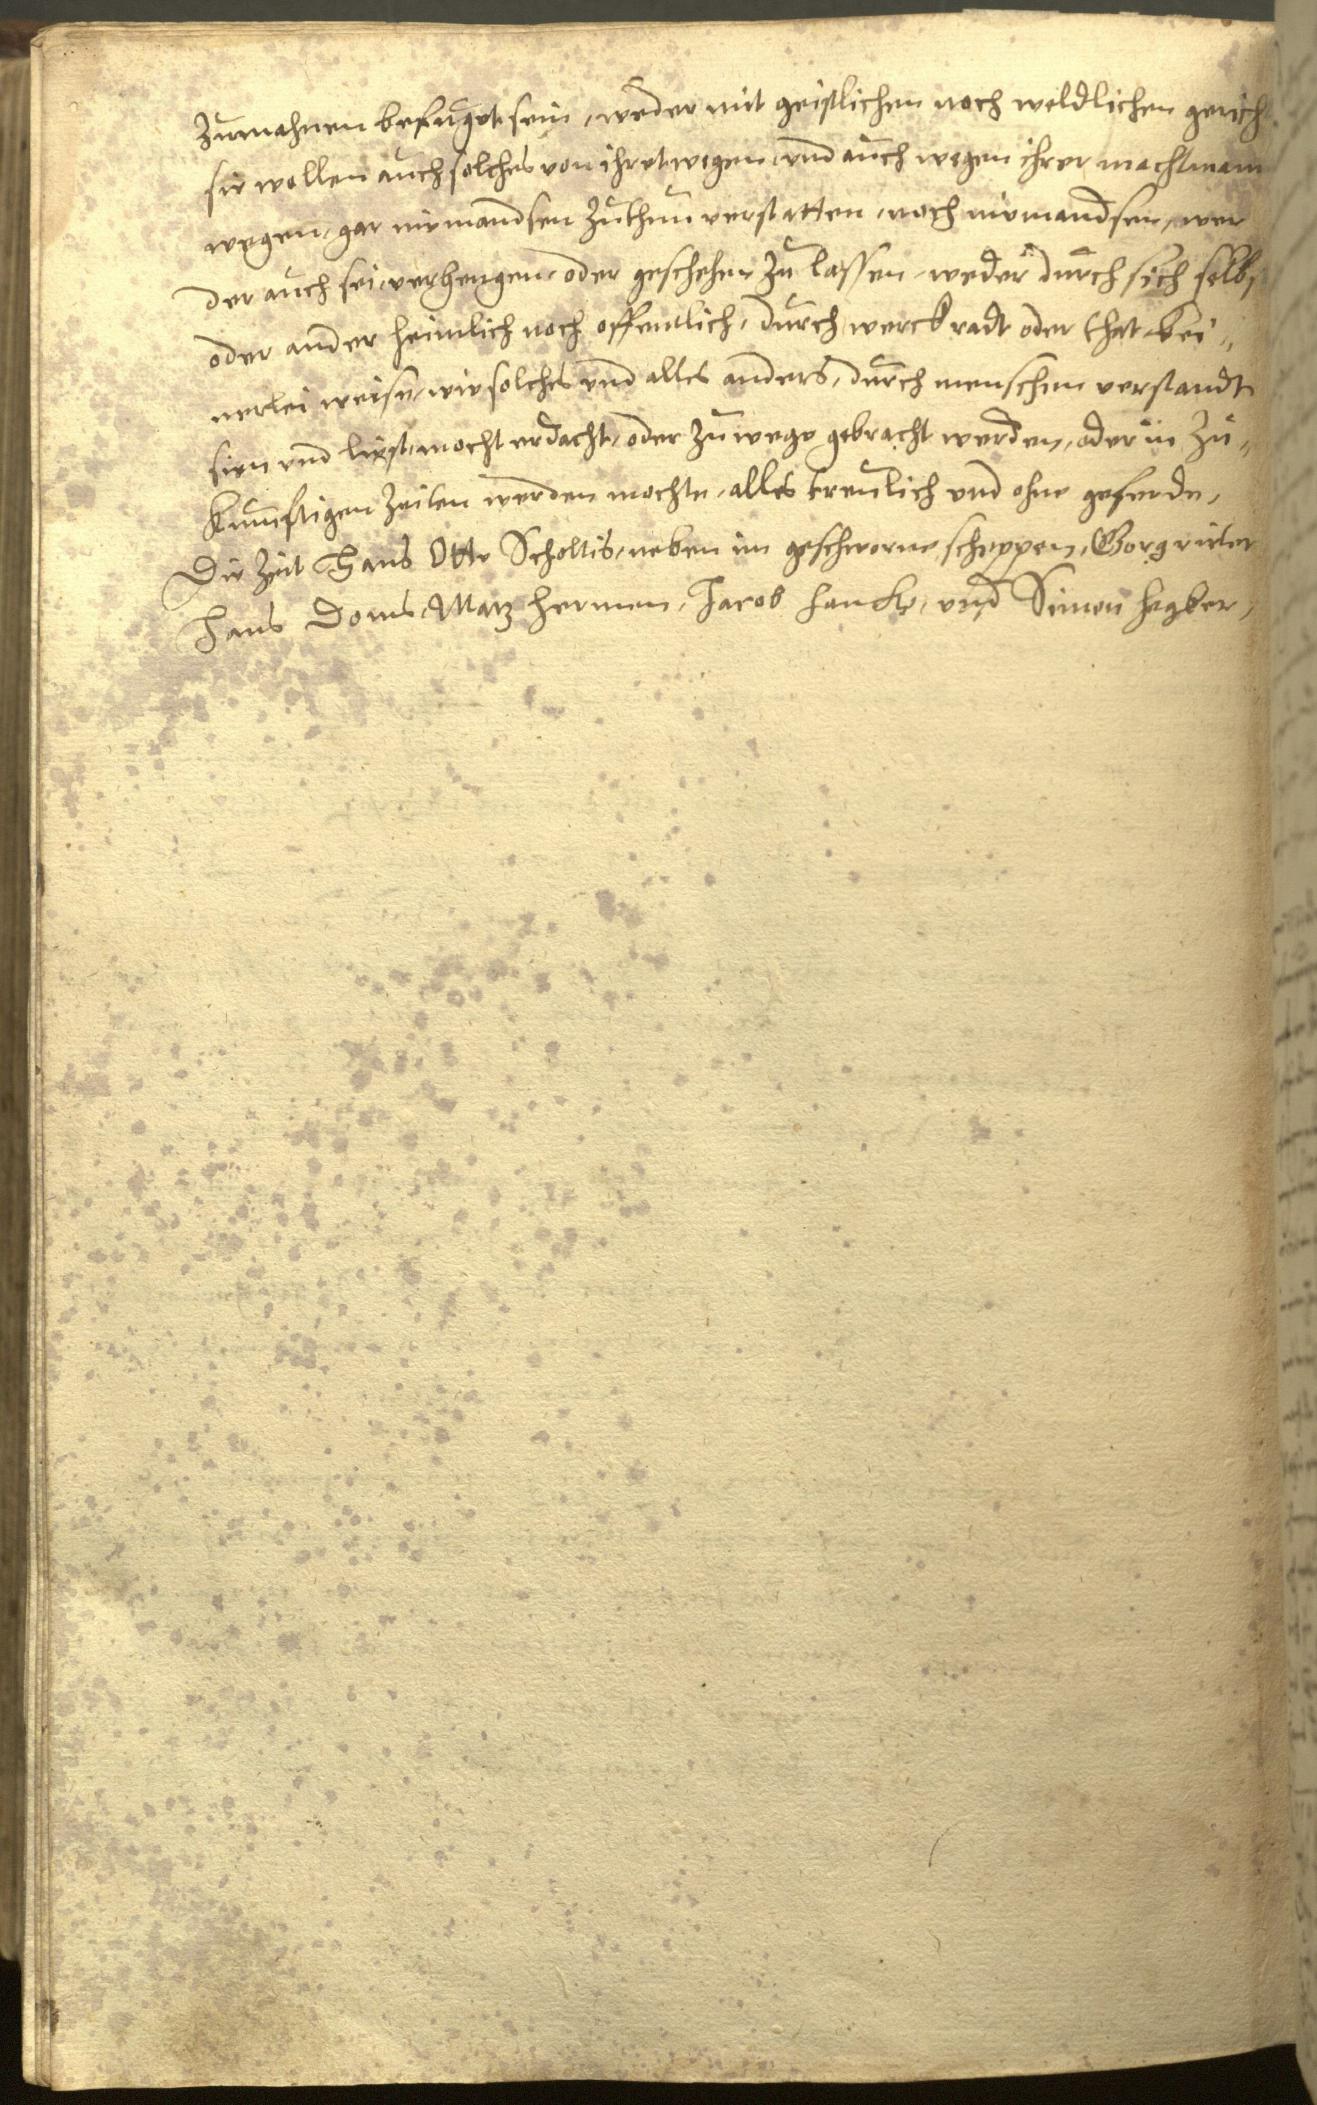 Zurmahnen befuget sein, weder mit geistlichen noch weldlichen gerich
sie wollen auch solches von ihret wegen und auch wegen ihrer machtmann
wegen, gar niemandsen Zuthun verstatten, noch niemandsen, wer
der auch sei, verhengen, oder geschehen zu lassen, weder durch sich selbs
oder ander heimlich noch offentlich, durch werck radt oder that kei„
nerlei weise, wie solches und alles anders, durch menschen verstandt
sien und liest, mocht erdacht, oder zuwege gebracht werden, oder in Zu„
kunfftigen Zeiten werden mochte, alles treulich und ohne geferde,
Die Zeit Hans Otte Scholtis, neben im geschworne scheppen, Gorg
Hans Doms, Matz Hermen, Jacob Hancke, und Simon